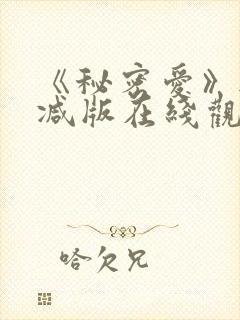 《秘密爱》
减版在线觀
哈欠兄